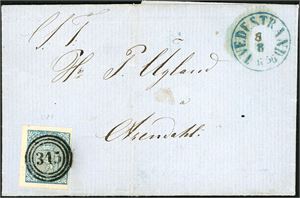 TVEDESTRAND
8
8
1856
S. T.
Hr. P. Ugland
a
Arendahl.
345